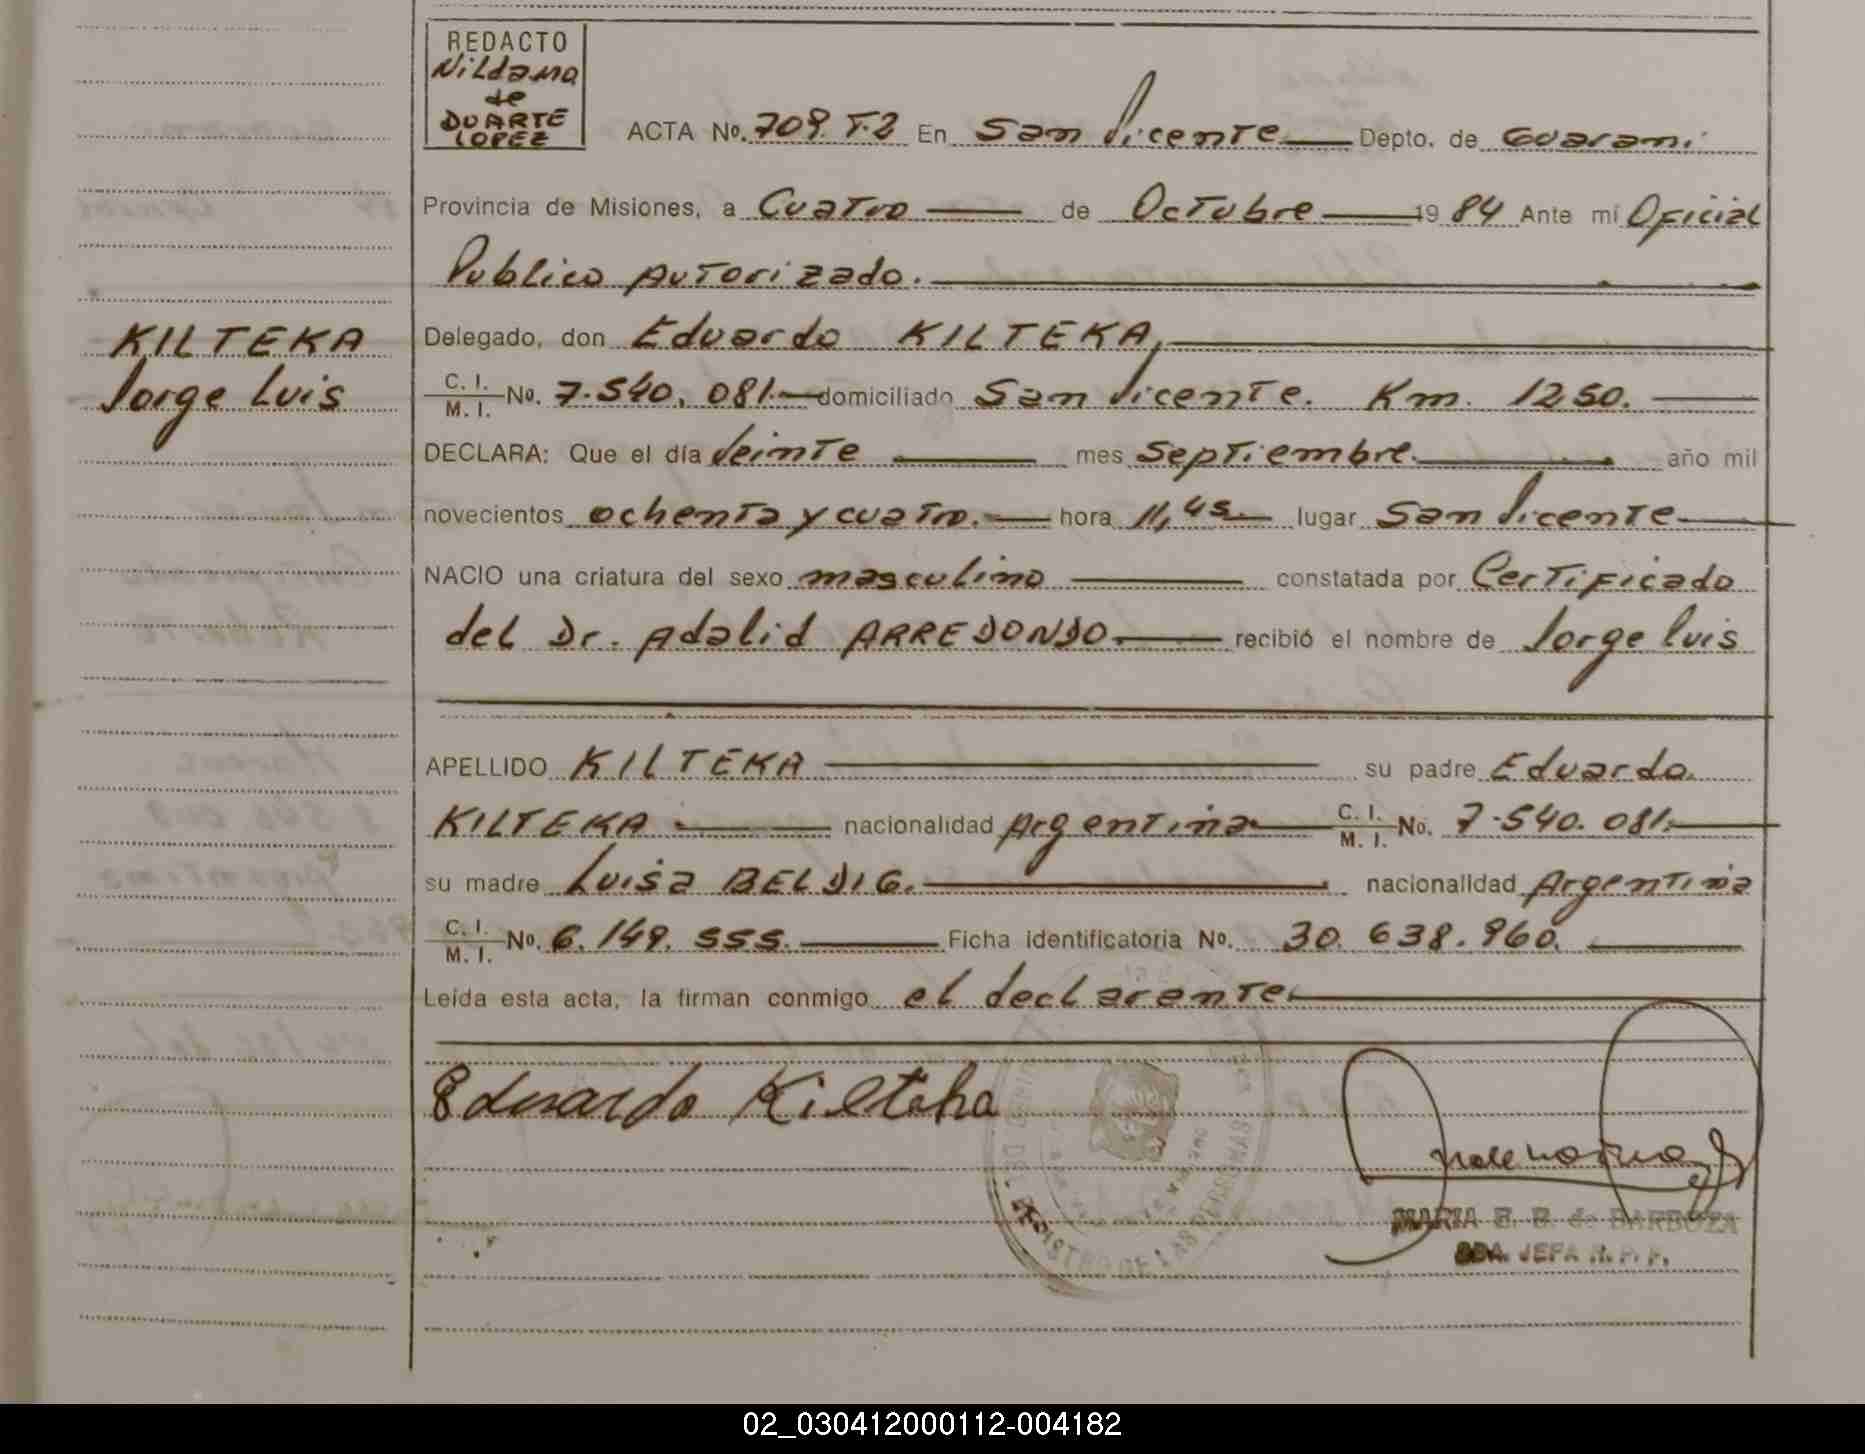 REDACTO
Nildama
de
DUARTE
LOPEZ
ACTA No. 709. T.2 En San Vicente Depto. de Guarani
Provincia de Misiones, a Cuatro de Octubre 19 84 Ante mí Oficial
Publico Autorizado.
KILTEKA
Jorge Luis
Delegado, don Eduardo KILTEKA,
C. I. / M. I. No. 7.540.081.- domiciliado San Vicente. Km. 1250.
DECLARA: Que el día Veinte mes Septiembre. año mil
novecientos ochenta y cuatro. hora 11,45 lugar San Vicente
NACIO una criatura del sexo masculino constatada por Certificado
del Dr. Adalid ARREDONDO. recibió el nombre de Jorge Luis
APELLIDO KILTEKA su padre Eduardo
KILTEKA nacionalidad Argentina C. I. / M. I. No. 7.540.081.
su madre Luisa BELDIG. nacionalidad Argentina
C. I. / M. I. No. 6.149.555. Ficha identificatoria No. 30.638.960.
Leída esta acta, la firman conmigo el declarante
Eduardo Kilteka
REGISTRO DE LAS PERSONAS
MARIA B. B. de BARBOZA
SDA. JEFA R. P. P.
02_030412000112-004182